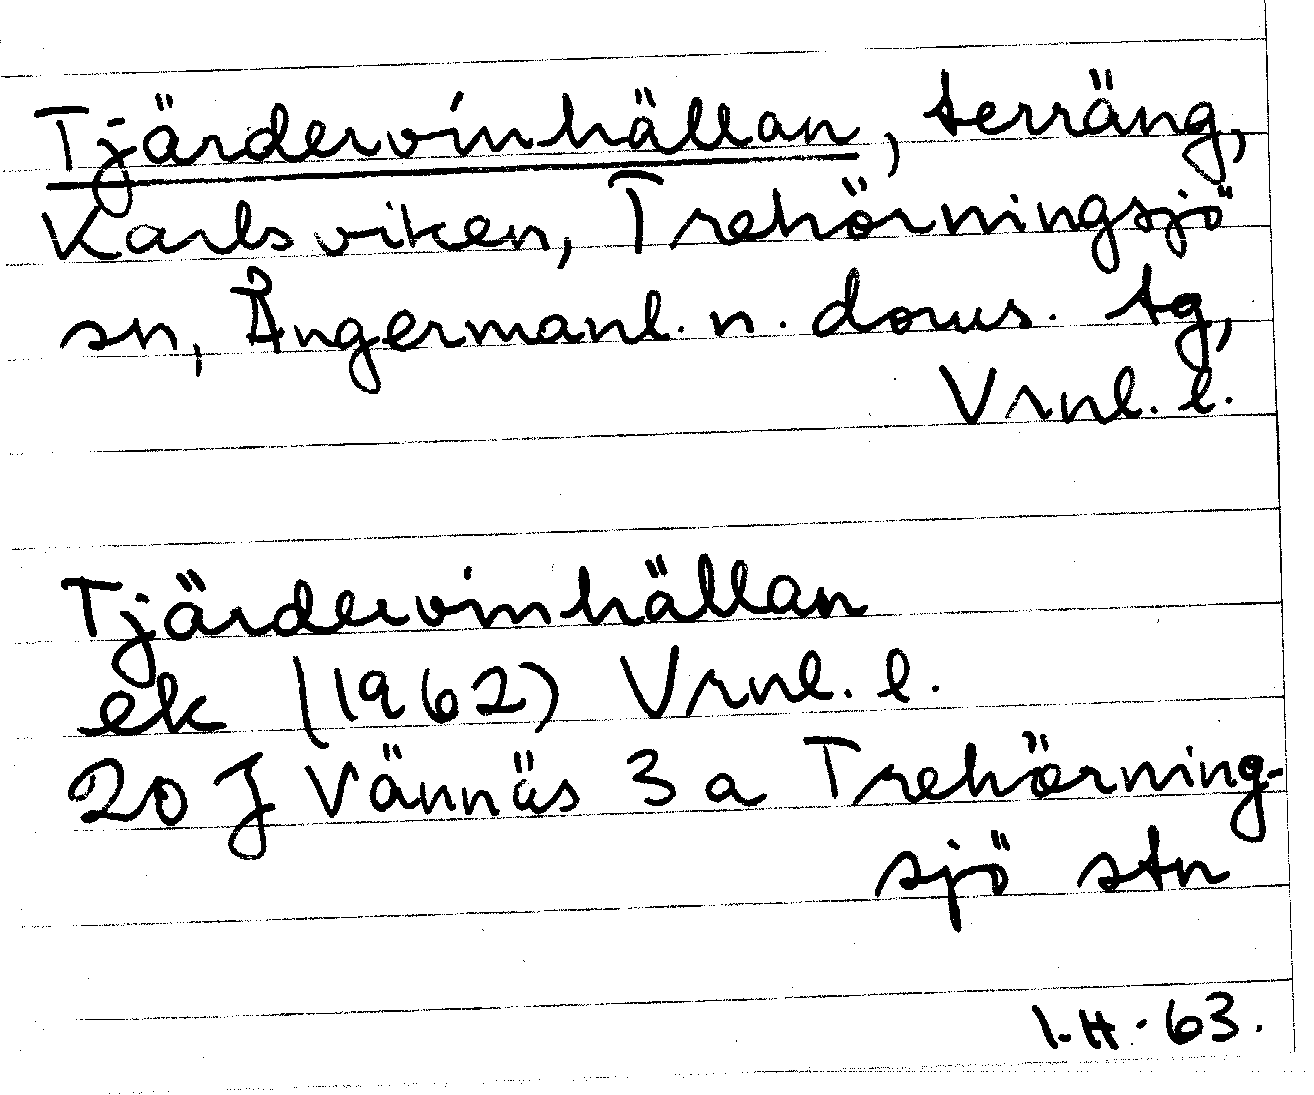 Tjärdervinhällan, terräng,
Karlsviken, Trehörningsjö
sn, Ångermanl. n. doms. tg,
Vrnl. l.
Tjärdervinhällan
ek (1962) Vrnl. l.
20 J Vännäs 3 a Trehörning-
sjö stn
63.